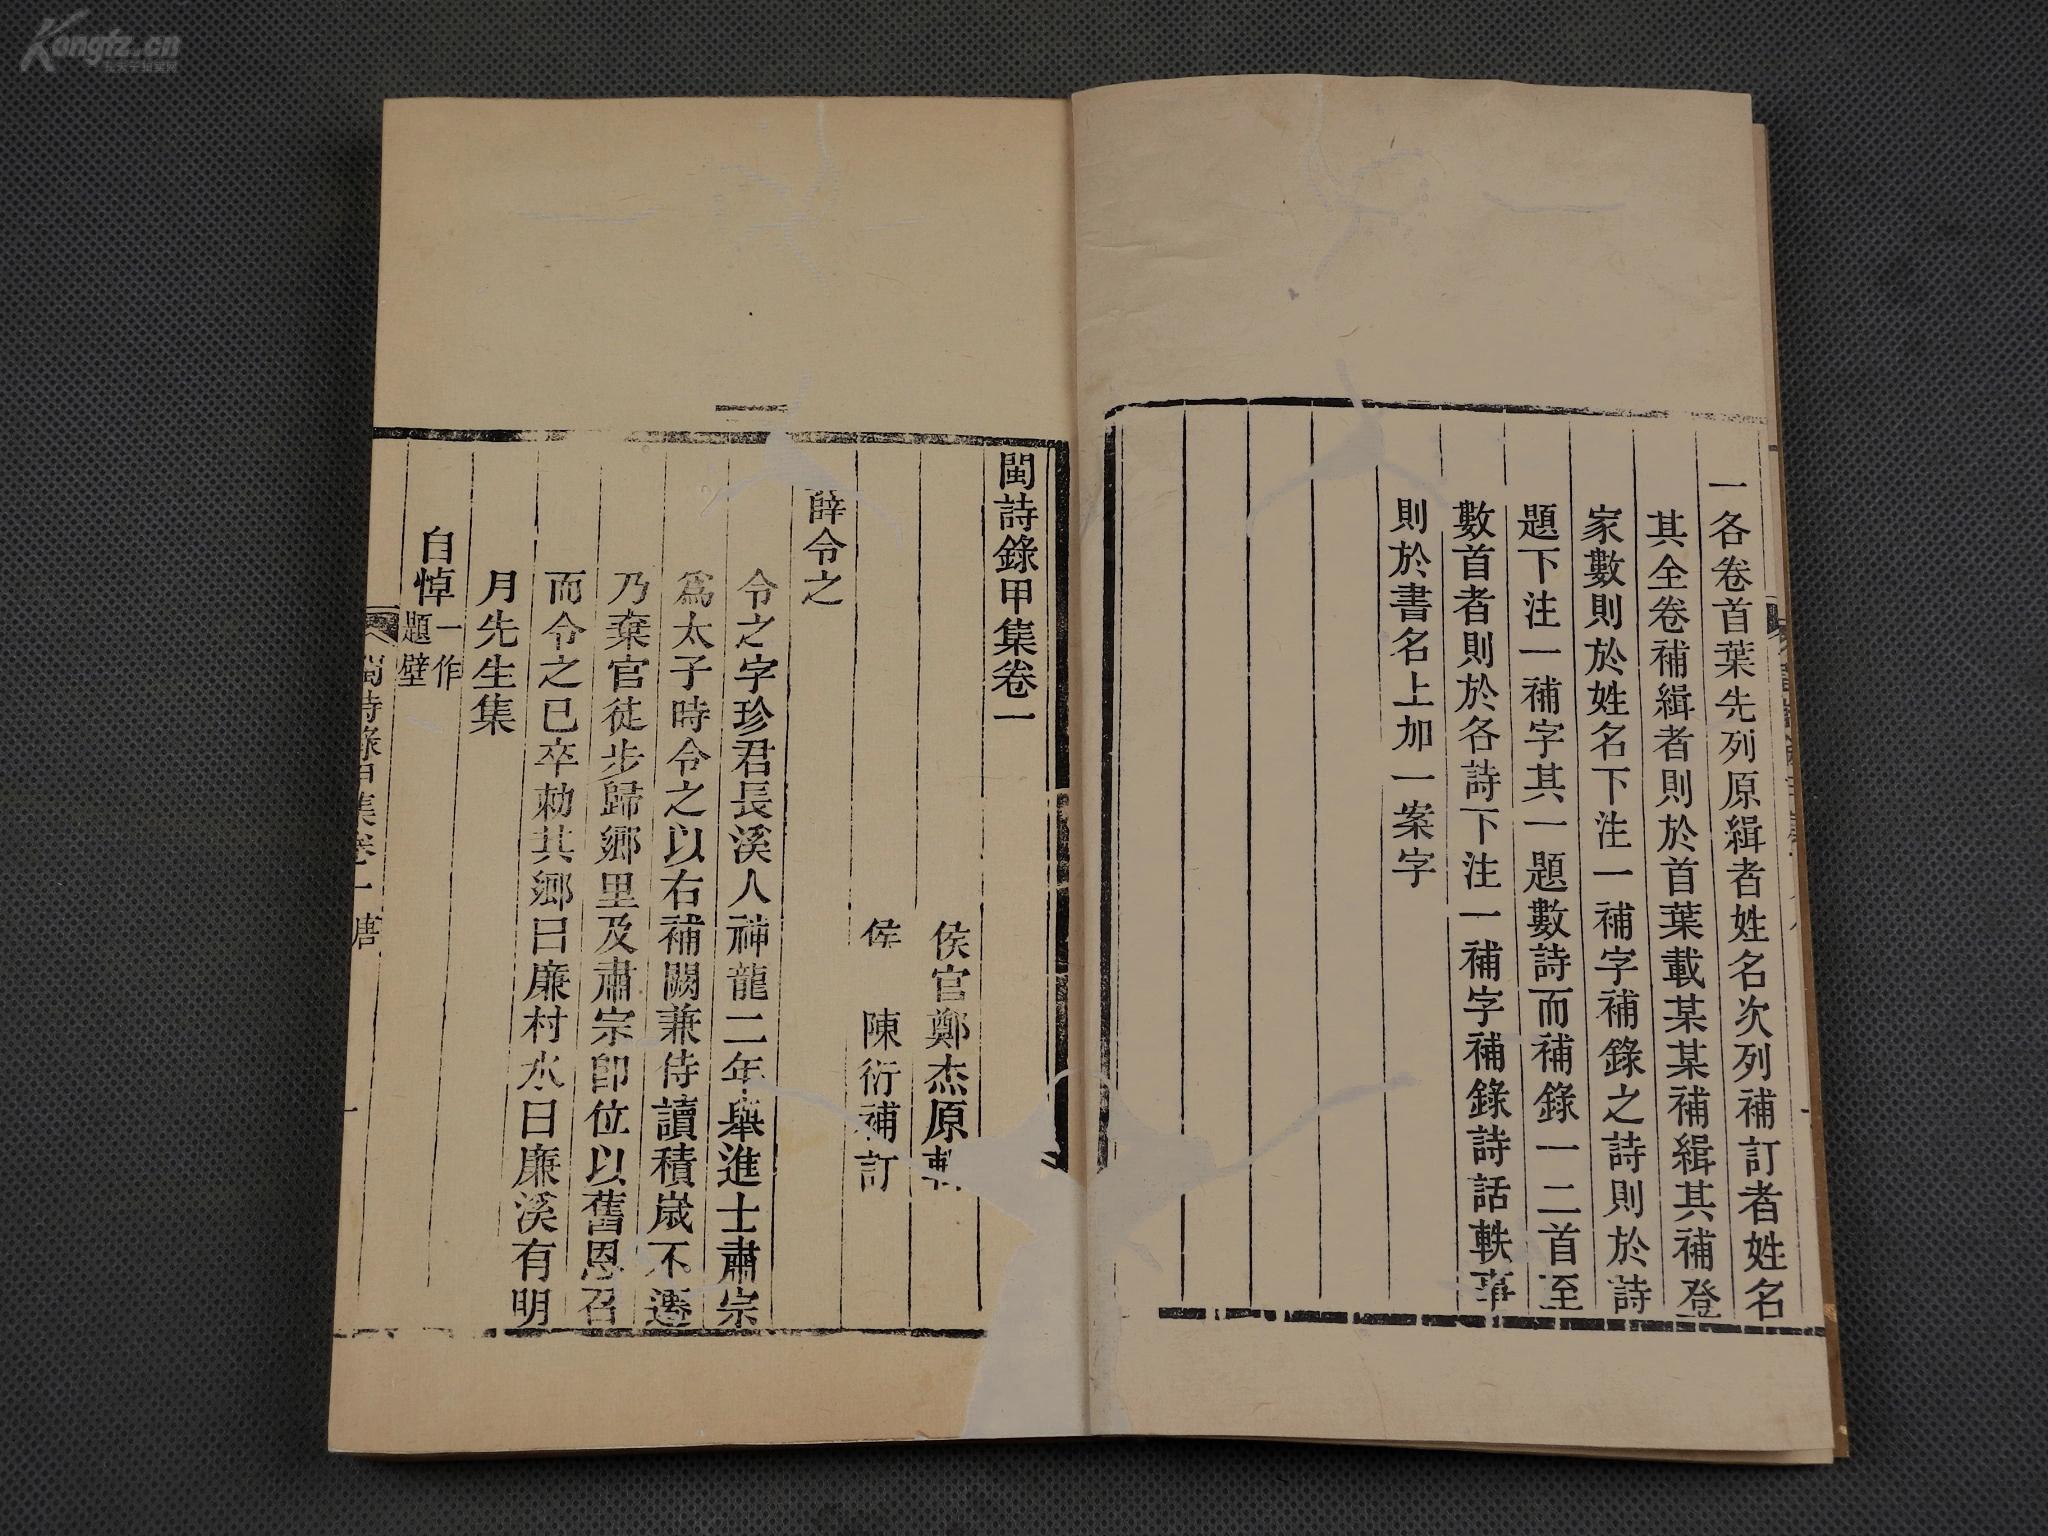 一各卷首葉先列原緝者姓名次列補訂者姓名
其全卷補緝者則於首葉載某某補緝其補登
家數則於姓名下注一補字補錄之詩則於詩
題下注一補字其一題數詩而補錄一二首至
數首者則於各詩下注一補字補錄詩話軼事
則於書名上加一案字
閩詩錄甲集卷一
侯官鄭杰原輯
侯 陳衍補訂
薛令之
令之字珍君長溪人神龍二年舉進士肅宗
為太子時令之以右補闕兼侍讀積嵗不遷
乃棄官徒步歸鄉里及肅宗卽位以舊恩召
而令之已卒勑其鄉曰廉村水曰廉溪有明
月先生集
自悼一作題壁
閩詩錄甲集卷一唐 一
Kongfz.cn
孔夫子拍卖网